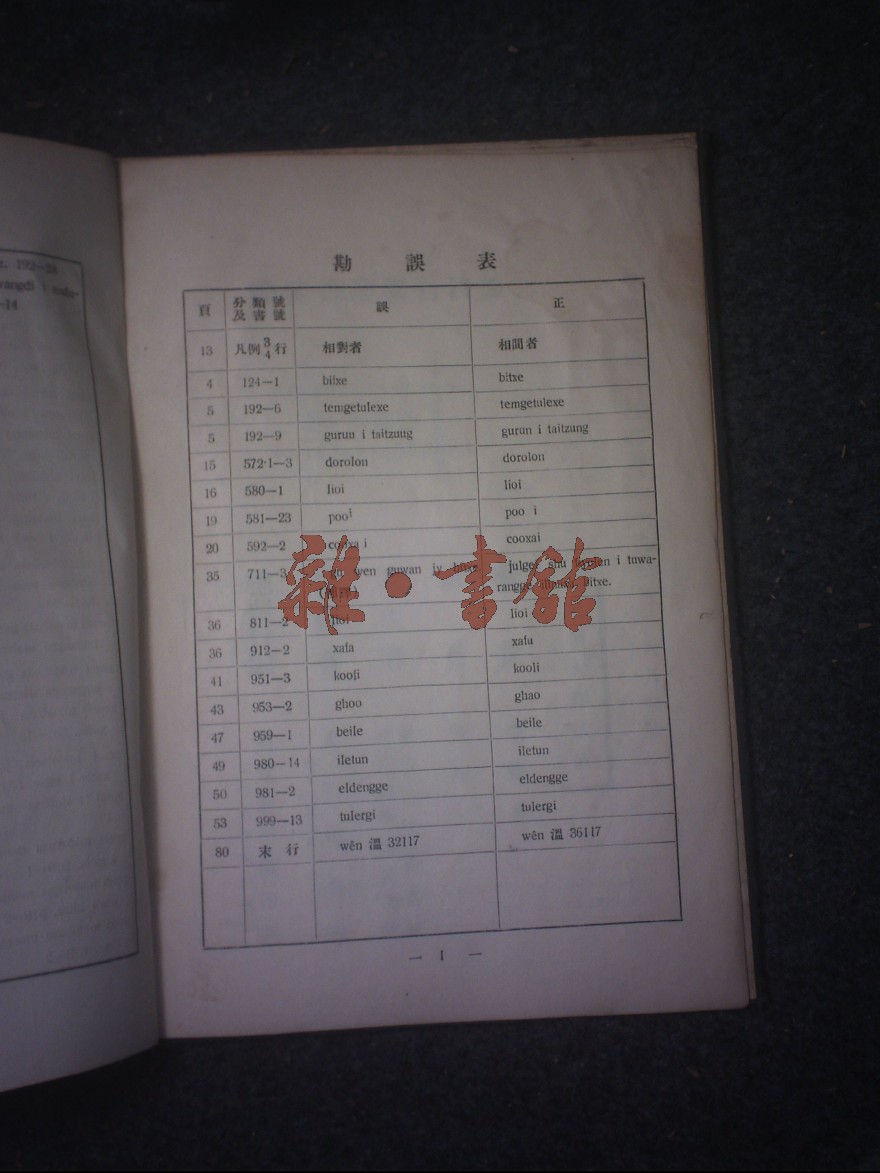 e. 192—28
-14
勘 誤 表
頁 分類號及書號 誤 正
13 凡例3/4行 相對者 相間者
4 124—1 bitxe bitxe
5 192—6 temgetulexe temgetulexe
5 192—9 gurun i taitzung gurun i taitzung
15 572·1—3 dorolon dorolon
16 580—1 lioi lioi
19 581—23 pooi poo i
20 592—2 cooxa i cooxai
35 711—3 wen guwan julgei šu i tuwa-
bitxe.
36 811—2 lioi lioi
36 912—2 xafa xafu
41 951—3 kooli kooli
43 953—2 ghoo ghao
47 959—1 beile beile
49 980—14 iletun iletun
50 981—2 eldengge eldengge
53 999—13 tulergi tulergi
80 末 行 wên 溫 32117 wên 溫 36117
雜·書館
— 1 —